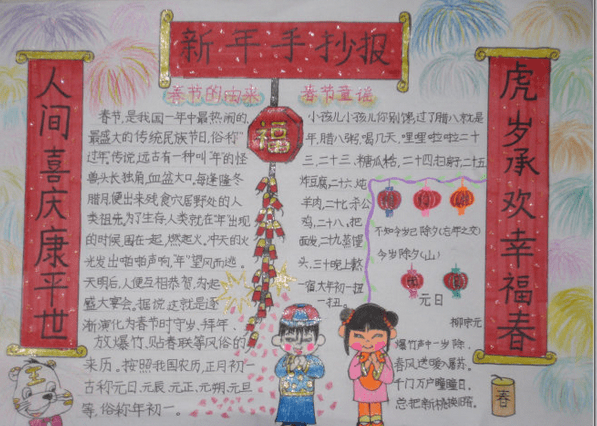 新年手抄报
人间喜庆康平世
虎岁承欢幸福春
春节的由来
春节,是我国一年中最热闹的,
最盛大的传统民族节日,俗称"
过年,传说,远古有一种叫"年"的怪
兽头长独角,血盆大口。每逢隆冬
腊月,便出来残食穴居野处的人
类祖先。为了生存,人类就在"年"出现
的时候,围在一起,燃起火。冲天的火
光发出啪啪声响,"年"望风而逃。
天明后,人便互相恭贺,为起
盛大宴会。据说这就是逐
渐演化为春节时守岁、拜年、
放爆竹、贴春联等风俗的
来历。按照我国农历,正月初一
古称元日、元辰、元正、元朔、元旦
等,俗称年初一。
福
春节童谣
小孩儿小孩儿你别馋,过了腊八就是
年,腊八粥,喝几天,哩哩啦啦二十
三,二十三,糖瓜粘,二十四扫房,二十五
炸豆腐,二十六,炖
羊肉,二十七,杀公
鸡,二十八,把
面发,二十九,蒸馒
头,三十晚上熬
一宿大年初一扭
一扭。
不知今岁已除夕
今岁除夕(山)
元日
柳宗元
爆竹声中一岁除,
春风送暖入屠苏。
千门万户曈曈日,
总把新桃换旧符。
春